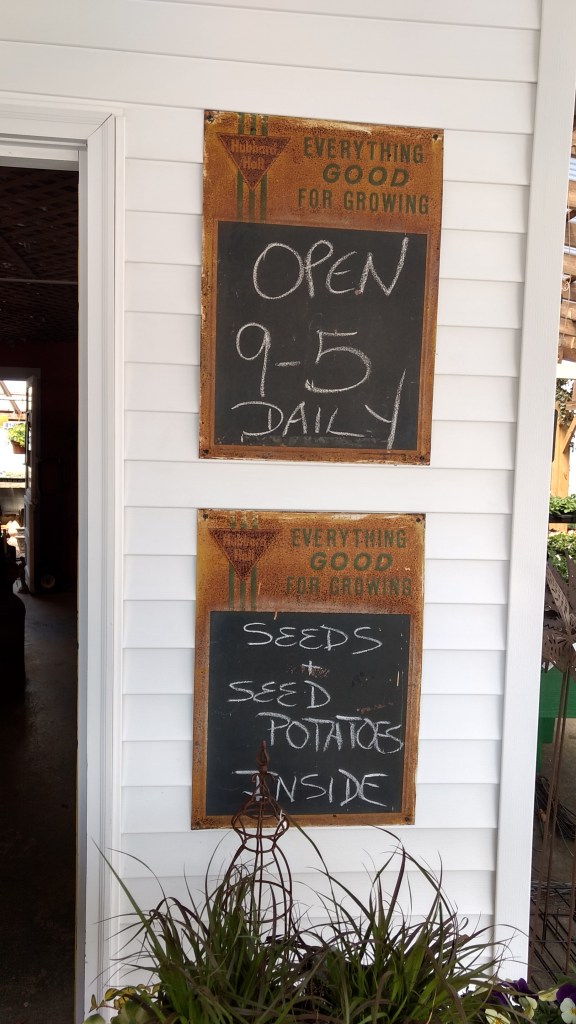 Hubbard
Hall
EVERYTHING
GOOD
FOR GROWING
OPEN
9-5
DAILY
EVERYTHING
GOOD
FOR GROWING
SEEDS
+
SEED
POTATOES
INSIDE